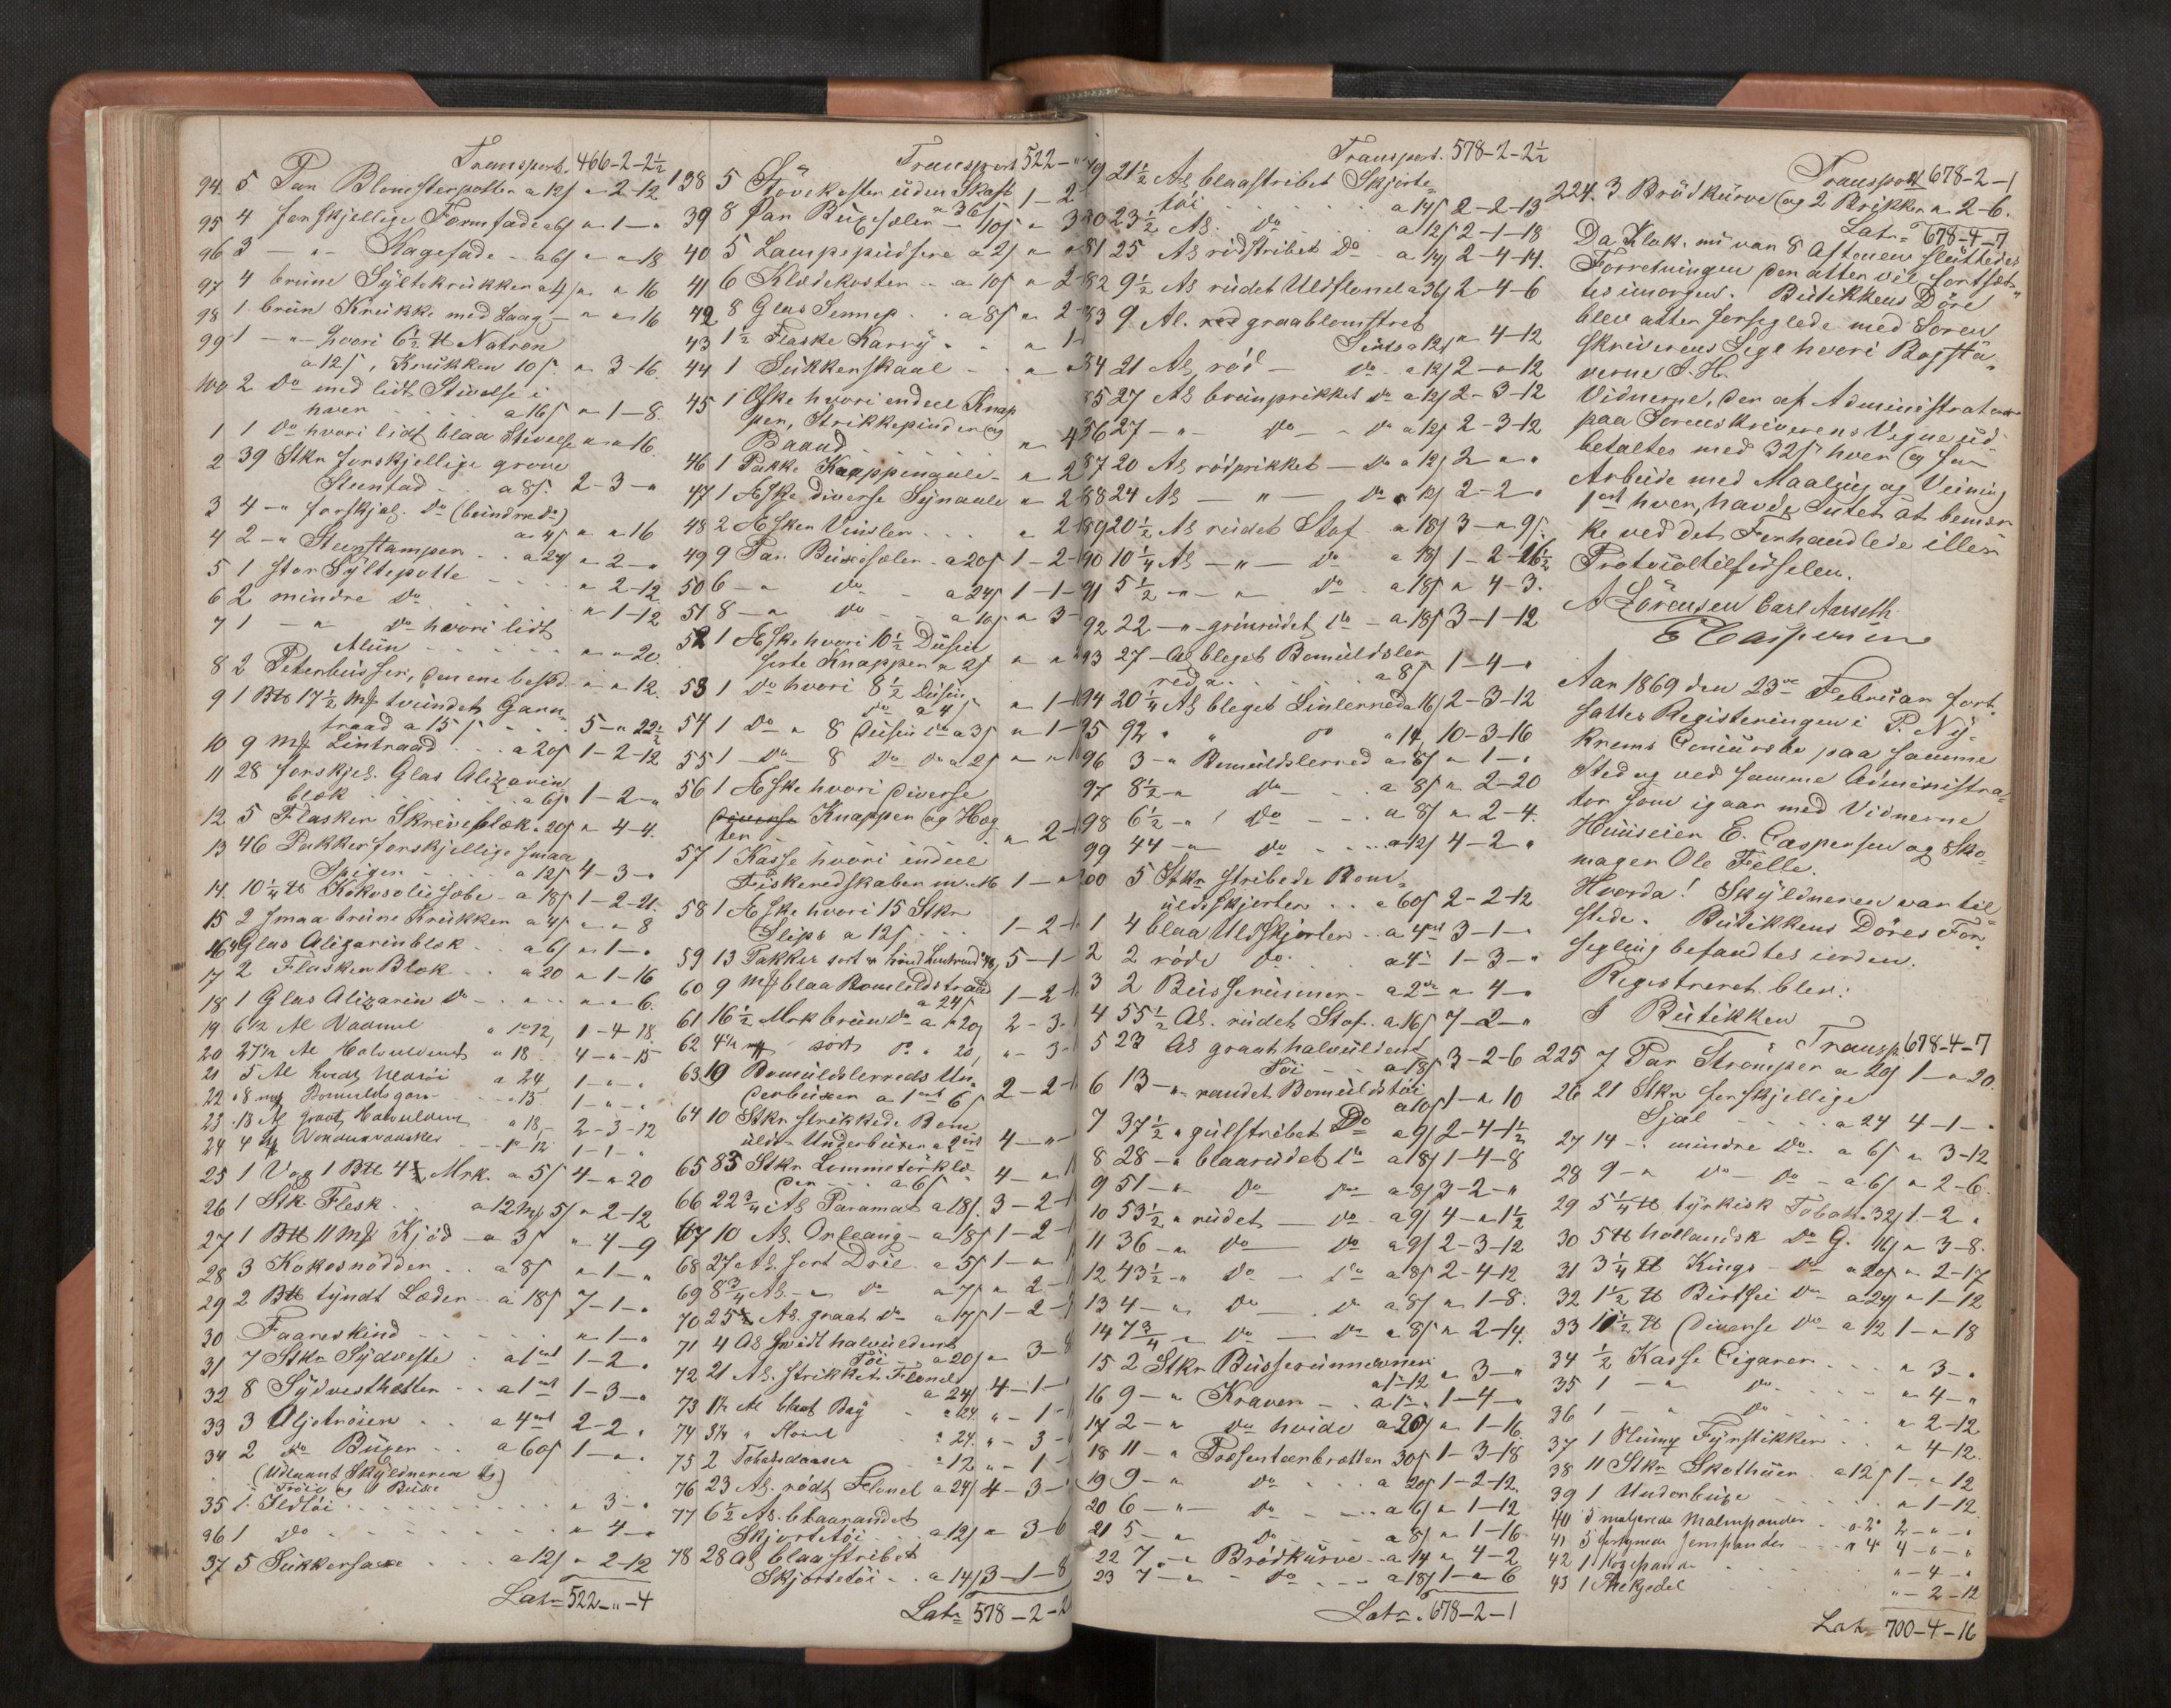 Transport. 466-2-2½
94. 5 Par Blomsterpotter a 12ſ " 2-12
95 4 forskjellige Formfade a 6ſ " 1 - "
96 3 - " - Kagefade - a 6ſ " " 18
97 4 brune Syltekrukker a 4ſ " " 16
98 1 brun Krukke med Laag - " " 16
99 1 - " - hvori 6½ ℔ Natron
a 12ſ, Krukken 10ſ " 3-16.
100 2 Do med lidt Stivelse i
hver . . . a 16ſ " 1-8.
1 1 Do hvori lidt blaa Stivelse " " 16.
2 39 Stkr forskjellige grove
Steentad - . a 8ſ. 2-3-"
3 4 - " forskjel. Do
a 4ſ " " 16
4 2 - " Steenstamper . . a 24 " 2 - "
5 1 stor Syltepotte - - - " 2-12
6 2 mindre Do . . . . . " 1-12
7 1 - " Do hvori lidt
Alun - - - - - " " 20.
8 2 Peterbusser, den ene besk. " " 12.
9 1 B℔ 17½ Mk tvundet Garn-
traad a 15ſ - . . 5-"-22½
10 9 Mk Lintraad . . . a 20ſ 1-2-12
11 28 forskjel. Glas Alizarin
blæk . . . . a 6ſ 1-2-"
12 5 Flasker Skriveblæk a 20ſ " 4-4.
13 46 Pakker forskjellige smaa
Spiger . . . . a 12ſ 4-3-"
14. 10¼ ℔ Kokosoliesæbe - a 18ſ 1-2-21.
15 2 smaa brune Krukker a 4ſ " " 8
16 4 Glas Alizarinblæk . . a 6ſ " 1 - "
17 2 Flasker Blæk . . a 20 " 1-16
18 1 Glas Alizarin Do - . . " - . " " 6.
19 6½ Al Vadmel " 1ort12, 1-4-18.
20 27½ Al Halvuldent " 18. 4-"-15
21 5 Al hvidt Uldtöi a 24, 1-"-"
22 8 mk Bomuldsgarn - - " 15. 1-"-"
23 18 Al graat Halvuldent a 18,- 2-3-12
24 4 - 1-1-"
25 1 Vog 1 B℔ 4½ Mrk. a 5ſ 4-"-20
26 1 Stk Flesk . . a 12 Mk 5ſ " 2-12
27 1 B℔ 11 Mk Kjöd - a 3ſ " 4-9
28 3 Kokosnödder . . a 8ſ " 1 - "
29 2 B℔ tyndt Læder . . a 18ſ 7-1-"
30 Faareskind - - - - - " 1 - "
31 7 Stkr Sydveste . a 1ort 1-2.
32 8 Sydvesthætter . . a 1ort 1-3-"
33 3 Oljetröier . . a 4ort 2-2.
34 2 Do Buxer . . a 60ſ 1-"-.
(Udtaant Skyldneren 1
Tröie og 1 Buxe)
35 1 Ildtöi . . . . . . . " 3 - "
36 1 Do - - - - - - " 4 - "
37 5 Sukkersaxe . . . a 12ſ " 2-12
Latr 522-"-4
Transport 522-"
138 5 Stövekoster uden Skaft
a 36ſ 1-2
39 8 Par Buxeseler - 10ſ " 3
40 5 Lampepudsere a 2ſ " "
41 6 Klædekoster - a 10ſ " 2-
42 8 Glas Sennep . . a 8ſ " 2-
43 1½ Flaske Karry . . " 1-
44 1 Sukkerskaal - . . " "
45 1 Æske hvori endeel Knap
per, Strikkepinder og
Baand . . . . " 4
46 1 Pakke Knappenaale - " 2
47 1 Æske diverse Synaale " 2
48 2 Æsker Vinsler . . . " 2
49 9 Par Buxeseler - a 20ſ 1-2-
50 6 - " Do - a 24ſ 1-1-
51 8 - " Do - a 10ſ " 3-
52 1 Æske hvori 10½ Dusin
sorte Knapper a 2ſ " "
53 1 Do hvori 8½ Dusin
Do a 4ſ " 1-
54 1 Do " 8 Dusin Do a 3ſ " 1-
55 1 Do - 8 Do Do a 2ſ " "
56 1 Æske hvori diverse
diverse Knapper og Hæg
ter " 2-
57 1 Kasse hvori endeel
Fiskeredskaber m.m. 1 - "
58 1 Æske hvori 15 Stkr
Slips a 12ſ . . . 1-2-
59 13 Pakker sort og hvid 5-1-
60 9 Mk blaa Bomuldstraad
a 24ſ 1-2-
61 16½ Mrk brun Do a 20ſ 2-3-
62 4½ mk sort Do " 20, "-3-
63 19 Bomuldslerreds Un-
derbuxer a 1ort 6ſ 2-2-
64 10 Stkr strikkede Bom-
ulds Underbuxer a 2ort 4-"-
65 83 Stkr Lommetörklæ
der - . . a 6ſ 4-"-
66 22¾ Al Paramat a 18ſ. 3-2-
67 10 Al. Orleang - a 18ſ 1-2-
68 27 Al. sort Dril - a 5ſ 1-"-
69 8¾ Al. - " - Do a 7ſ " 2-
70 25½ Al. graat Do a 7ſ 1-2-
71 4 Al hvidt halvuldent
Töi . . a 20ſ " 3-8
72 21 Al. strikket Flonel
a 24ſ 4-1-
73 1½ Al blaat Bay " 24. "-1-
74 3¼ " " 24. "-3-
75 2 Tobaksdaaser " 12, "-1-
76 23 Al. rödt Flonel a 24ſ 4-3-
77 6½ Al. blaarandet
Skjortetöi . . a 12ſ " 3-6
78 28 Al blaastribet
Skjortetöi . . a 14ſ 3-1-8
Latr 578-2-2
Transport. 578-2-2½
79 21½ Al blaastribet Skjorte-
töi . . . . a 14ſ 2-2-13
80 23½ Al. Do . . . a 12ſ 2-1-18
81 25 Al rödstribet Do - a 14ſ 2-4-14.
82 9½ Al rudet Uldflonel a 36ſ 2-4-6
83 9 Al. rød graablomstret
Sirts a 12ſ " 4-12
84 21 Al. röd - Do - a 12ſ 2-"-12
85 27 Al brunprikket Do a 12ſ 2-3-12
86 27 - " - Do - - Do a 12ſ 2-3-12
87 20 Al rödprikket - Do a 12ſ 2-"-"
88 24 Al - " - Do a 12ſ 2-2-"
89 20½ Al rudet Stof . a 18ſ 3-"-9ſ.
90 10¼ Al - " - Do a 18ſ 1-2-16½
91 5½ - " - " Do . a 18ſ " 4-3.
92 22 - " - grönrudet Do - a 18ſ 3-1-12
93 27 - Al bleget Bomuldsler
red a . . . a 8ſ 1-4-"
94 20¼ Al bleget Linlerred a 16ſ 2-3-12
95 92 " " Do " 14, 10-3-16
96 3 - " Bomuldslerred a 8ſ " 1-"
97 8½ - " Do - . . a 8ſ " 2-20
98 6½ - " Do - - . a 8ſ " 2-4.
99 44 - " Do . . . . a 12ſ 4-2 "
200 5 Stkr stribede Bom-
uldsskjorter . . a 60ſ 2-2-12
1 4 blaa Uldskjorter . . a 4ort 3-1-"
2 2 röde Do . . . a 4 1-3-"
3 2 Busseruiner - a 2ort " 4-"
4 55½ Al. rudet Stof . a 16ſ 7-2-"
5 23 Al graat halvuldent
Töi - - a 18ſ 3-2-6
6 13 - " - randet Bomuldstöi
a 10ſ 1-"-10
7 37½ " gulstribet Do a 9ſ 2-4-1½
8 28 - " blaarudet Do a 8ſ 1-4-8
9 51 - " - Do Do a 8ſ 3-2-"
10 53½ " rudet - Do . a 9ſ 4-"-1½
11 36 - " Do - Do a 9ſ 2-3-12
12 43½ - " Do - Do a 8ſ 2-4-12
13 4 - " Do - . Do a 8ſ " 1-8.
14 7¾ - " Do - Do a 8ſ " 2-14.
15 2 Stkr
a 1-12 " 3-"
16 9 - " Kraver - . a 1ort. 1-4-"
17 2 - " Do hvide a 20ſ " 1-16
18 11 - " Præsenteerbretter 30ſ 1-3-18
19 9 - " Do . . . a 20ſ 1-2-12.
20 6 - " - Do - . . a 6ſ " 1-12
21 5 - " Do - . - a 8ſ " 1-16
22 7 - " Brödkurve - a 14 " 4-2
23 7 - " - Do . . - a 18ſ 1-"-6
Latr. 678-2-1
Transport 678-2-1
224. 3 Brödkurve og 2 Brikker " 2-6.
Latr 678-4-7
Da Klok. nu var 8 Aftenen sluttedes
Forretningen der atter vil fortsæt-
tes imorgen. Butikkens Döre
blev atter forseglede med Soren
skriverens Segl hvori Bogsta-
verne S. H.
Vidnerne, der af Administrator
paa Sorenskriverens Vegne ud-
betaltes med 32ſ hver og for
Arbeide med Maaling og Veining
1ort hver, havde Intet at bemær
ke ved det Forhandlede eller
Protocoltilførselen.
A Lörensen Carl Aarseth
E Caspersen
Aar 1869 den 23de Februar fort-
sattes Registeringen i P. Ny-
krems Concursbo paa samme
Sted og ved samme Administra-
tor som igaar med Vidnerne
Huuseier E. Caspersen og Sko-
mager Ole Felle.
Hvorda! Skyldneren var til-
stede. Butikkens Döres For-
segling befandtes i orden.
Registreret blev:
I Butikken
Transp. 678-4-7
225 7 Par Strömper a 20ſ 1-"-20.
26 21 Stkr forskjellige
Sjal - - - a 24 4-1-.
27 14 - " mindre Do . . a 6ſ " 3-12
28 9 - " Do - Do - a 6ſ " 2-6.
29 5¼ ℔ tyrkisk Tobak 32ſ 1-2.
30 5 ℔ hollandsk Do G. 16ſ " 3-8.
31 3¼ ℔ Kings - Do " 20ſ " 2-17
32 1½ ℔ Do a 24ſ " 1-12
33 11½ ℔ Diverse Do a 12 1-"-18
34 ½ Kasse Cigarer . . . " 3-.
35 1 - " Do . . . . . " 4-"
36 1 - " - Do - - - . . " 2-12
37 1 Fyrstikker . . " 4-12.
38 11 Stkr Skothuer . a 12ſ 1-"-12
39 1 Underbuxe . . . . . " 1-12
40 5 Malmpander . a 2 2-"-"
41 5 Jernpander - - " 4 4-"-"
42 1 Kogepande . . . "-4-"
43 1 Thekjedel "-2-12
Latr 700-4-16